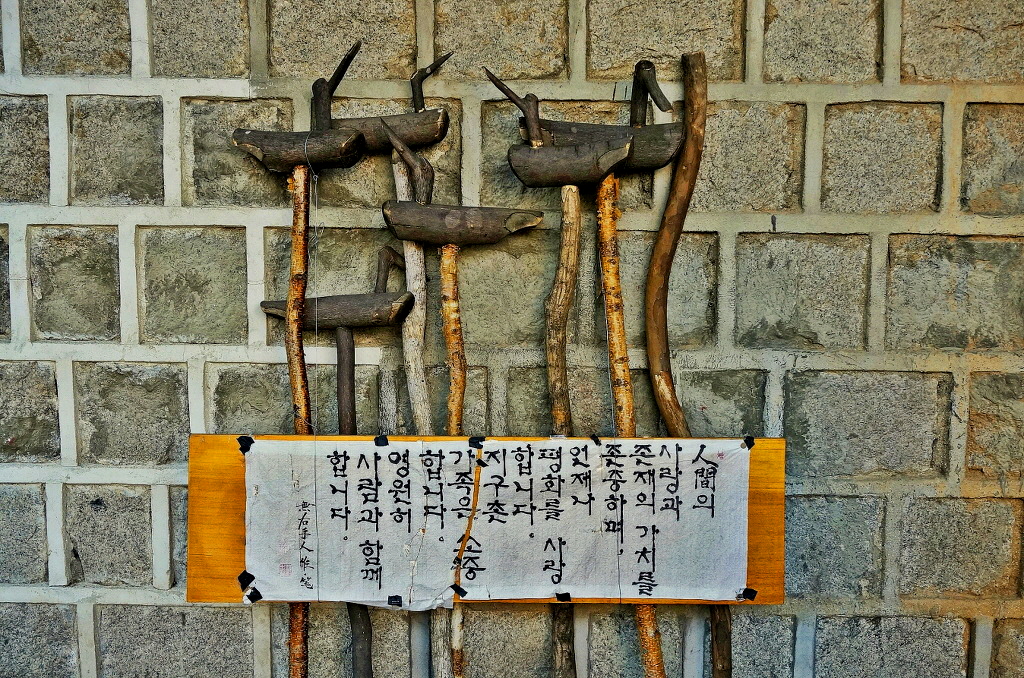 人間의
사랑과
존재의 가치를
존중하며,
언제나
평화를 사랑
합니다.
지구촌
가족은 소중
합니다.
영원히
사람과 함께
합니다.